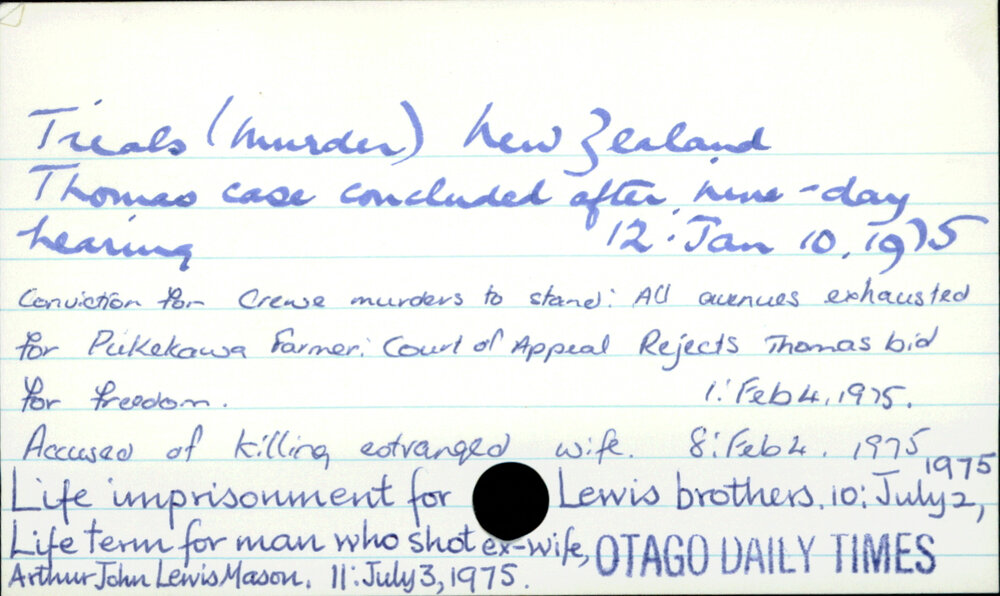 Trials (Murder) New Zealand
Thomas case concluded after nine-day
hearing 12: Jan 10, 1975
Conviction for Crewe murders to stand: All avenues exhausted
for Pukekawa Farmer: Court of Appeal Rejects Thomas bid
for freedom. 1: Feb 4, 1975.
Accused of killing estranged wife. 8: Feb 4, 1975
Life imprisonment for Lewis brothers. 10: July 2, 1975
Life term for man who shot ex-wife,
Arthur John Lewis Mason. 11: July 3, 1975.
OTAGO DAILY TIMES